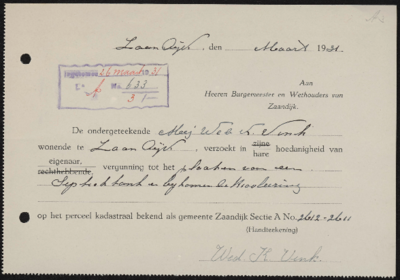 Zaandijk, den Maart 1931.
Aan
Heeren Burgemeester en Wethouders van
Zaandijk.
Ingekomen 26 maart 31
No. 633
3/-
De ondergeteekende Mej Wed K. Vink
wonende te Zaandijk, verzoekt in zijne
hare hoedanigheid van
eigenaar,
rechthebbende, vergunning tot het plaatsen van een
Septictank
op het perceel kadastraal bekend als gemeente Zaandijk Sectie A No. 2612-2611
(Handteekening)
Wed. K. Vink.